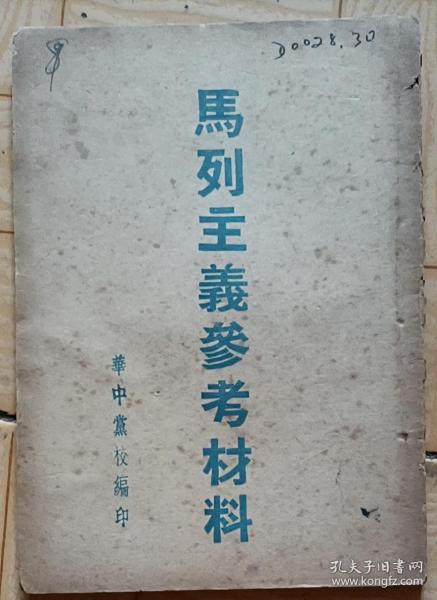 D0028.30
馬列主義參考材料
華中黨校編印
孔夫子旧书网
www.kongfz.com